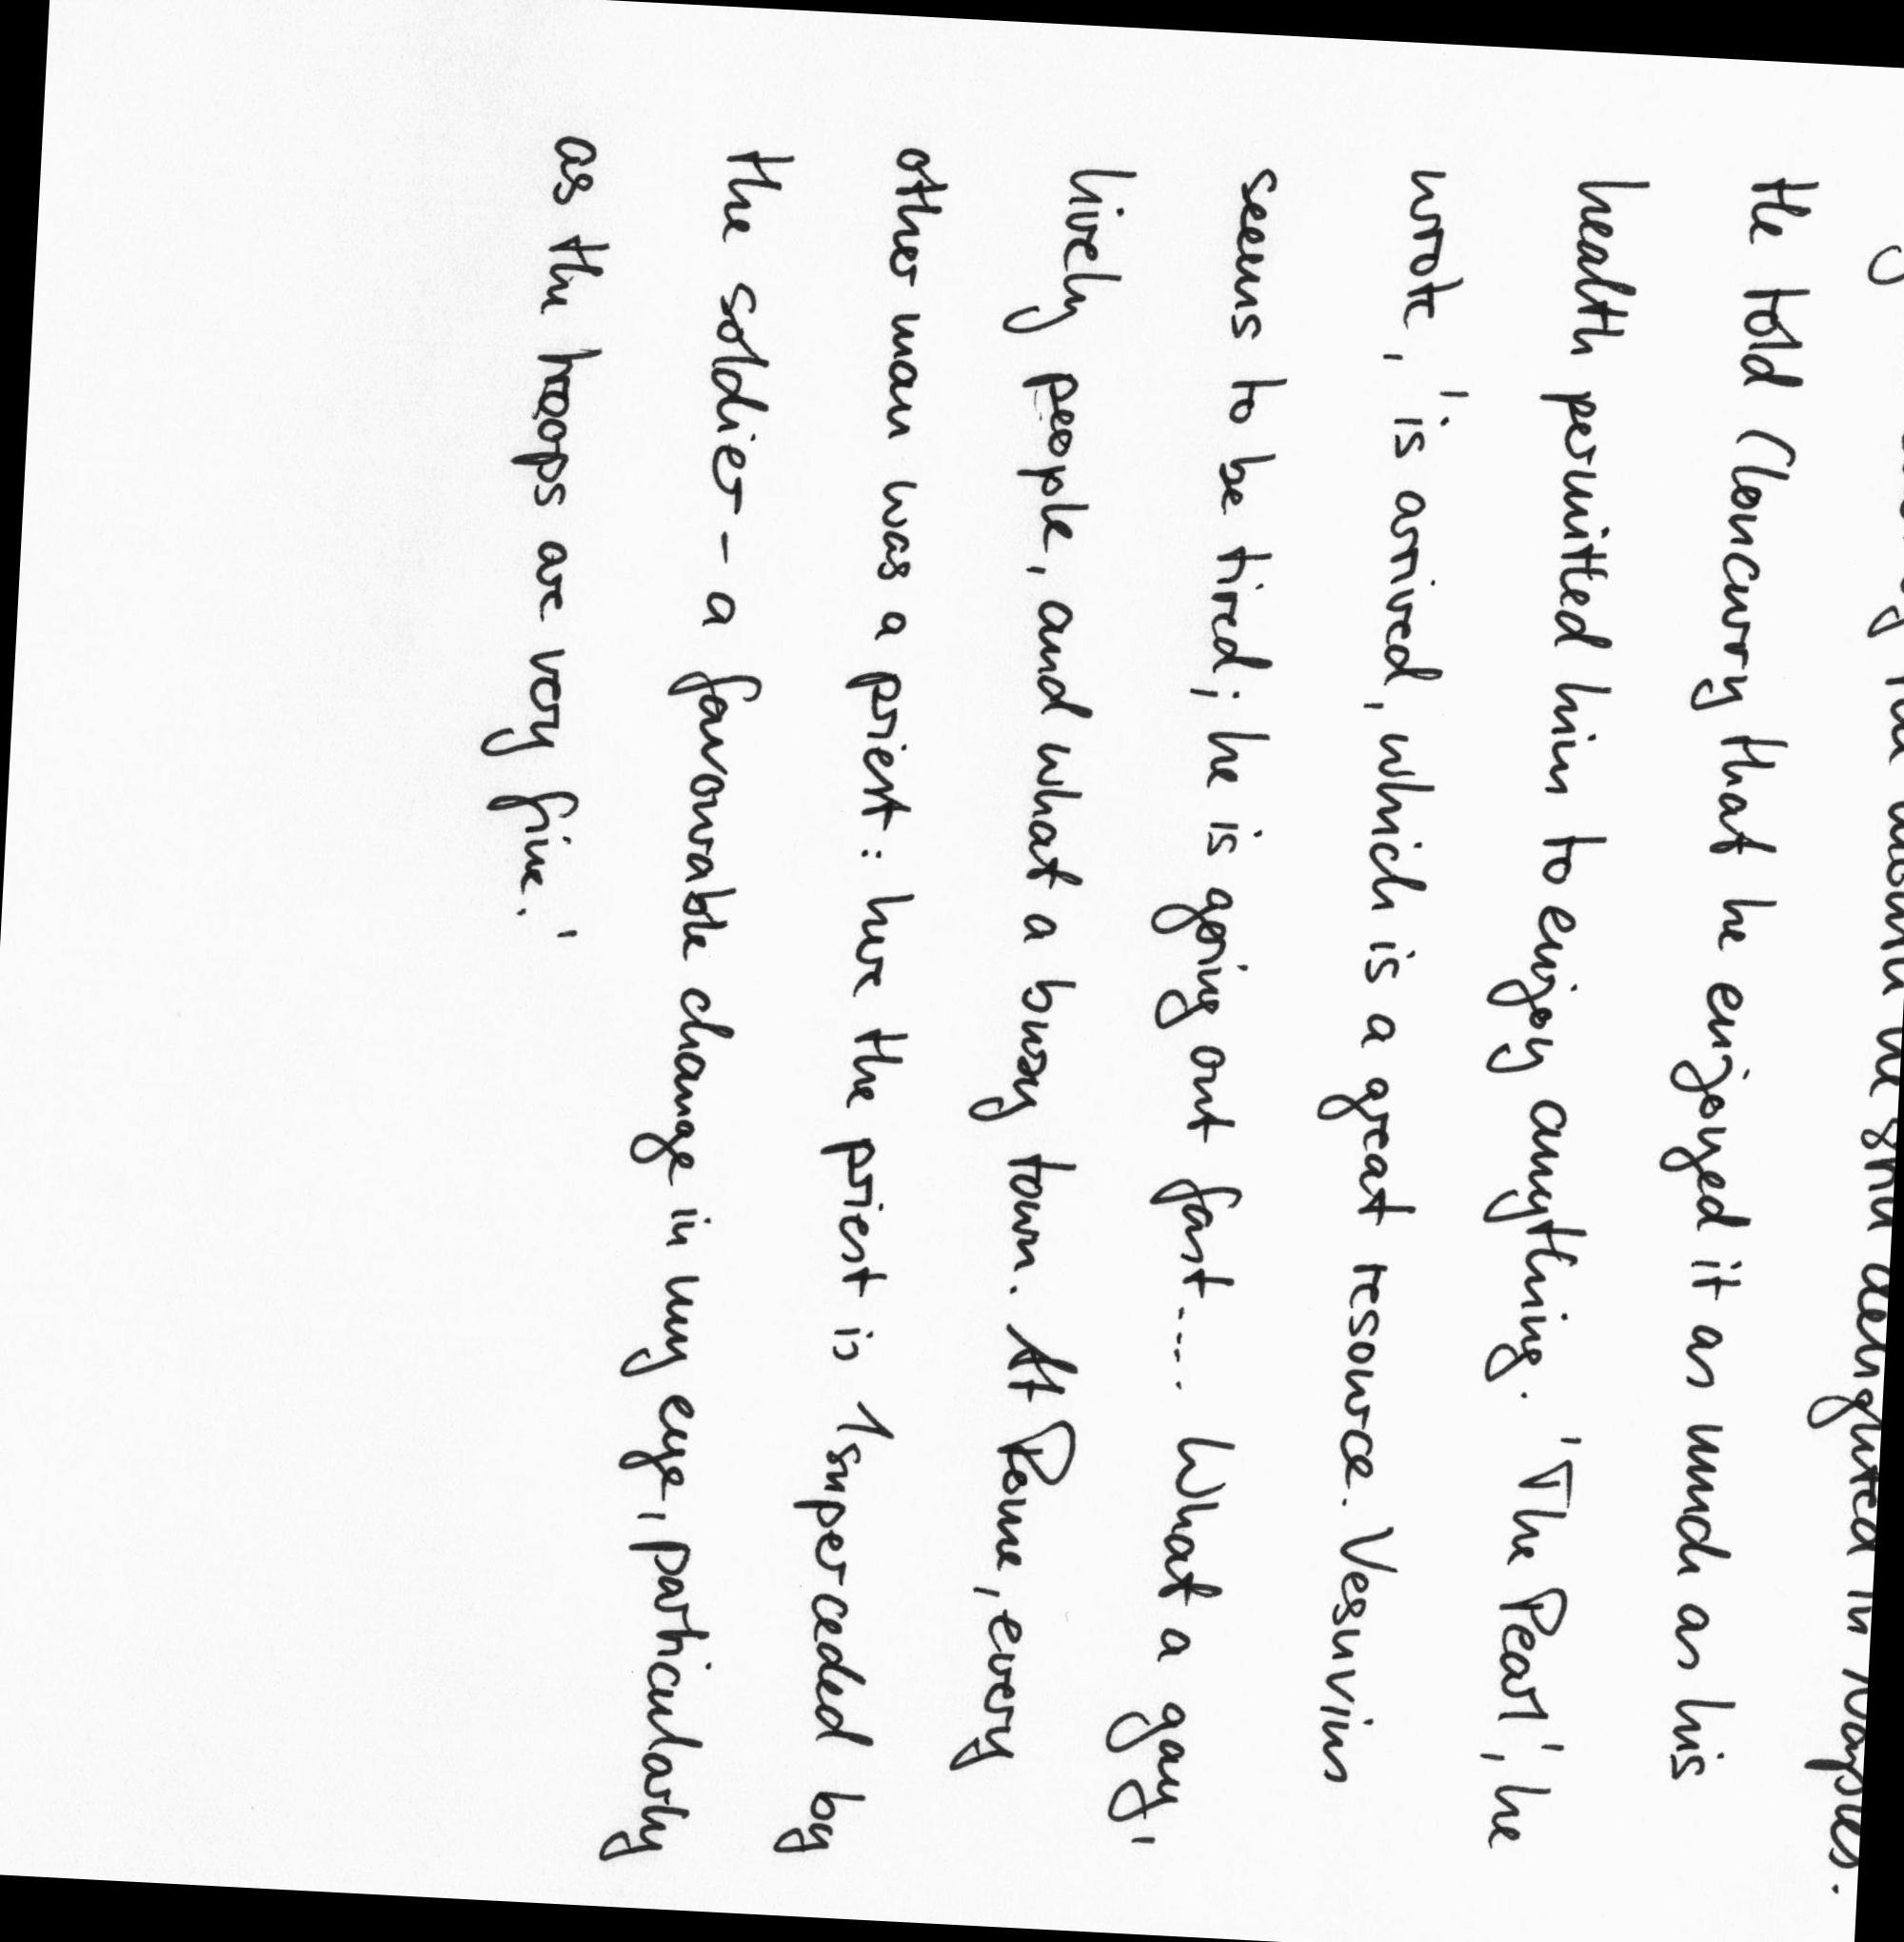 delighted in Naples.
He told Cloncurry that he enjoyed it as much as his
health permitted him to enjoy anything. 'The Pearl', he
wrote, 'is arrived, which is a great resource. Vesuvius
seems to be tired; he is going out fast.... What a gay,
lively people, and what a busy town. At Rome, every
other man was a priest: here the priest is superceded by
the soldier - a favourable change in my eye, particularly
as the troops are very fine.'